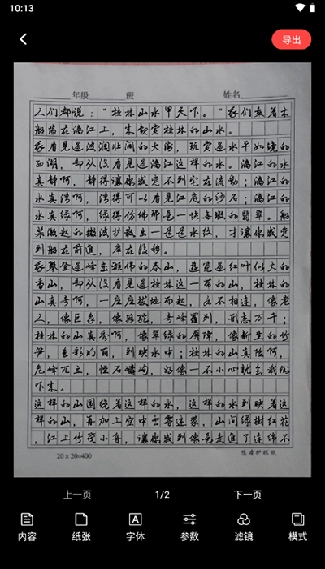 10:13
导出
年级 班 姓名
人们都说："桂林山水甲天下。"我们乘着木
船荡在漓江上，来观赏桂林的山水。
我看见过波澜壮阔的大海，玩赏过水平如镜的
西湖，却从没看见过漓江这样的水。漓江的水
真静啊，静得让你感觉不到它在流动；漓江的
水真清啊，清得可以看见江底的沙石；漓江的
水真绿啊，绿得仿佛那是一块无瑕的翡翠。船
桨激起的微波扩散出一道道水纹，才让你感觉
到船在前进，岸在后移。
我攀登过峰峦雄伟的泰山，游赏过红叶似火的
香山，却从没看见过桂林这一带的山，桂林的
山真奇啊，一座座拔地而起，各不相连，像老
人，像巨象，像骆驼，奇峰罗列，形态万千；
桂林的山真秀啊，像翠绿的屏障，像新生的竹
笋，色彩明丽，倒映水中；桂林的山真险啊，
危峰兀立，怪石嶙峋，好像一不小心就会栽倒
下来。
这样的山围绕着这样的水，这样的水倒映着这
样的山，再加上空中云雾迷蒙，山间绿树红花
，江上竹筏小舟，让你感到像是走进了连绵不
20 x 20=400
上一页 1/2 下一页
内容 纸张 字体 参数 滤镜 模式